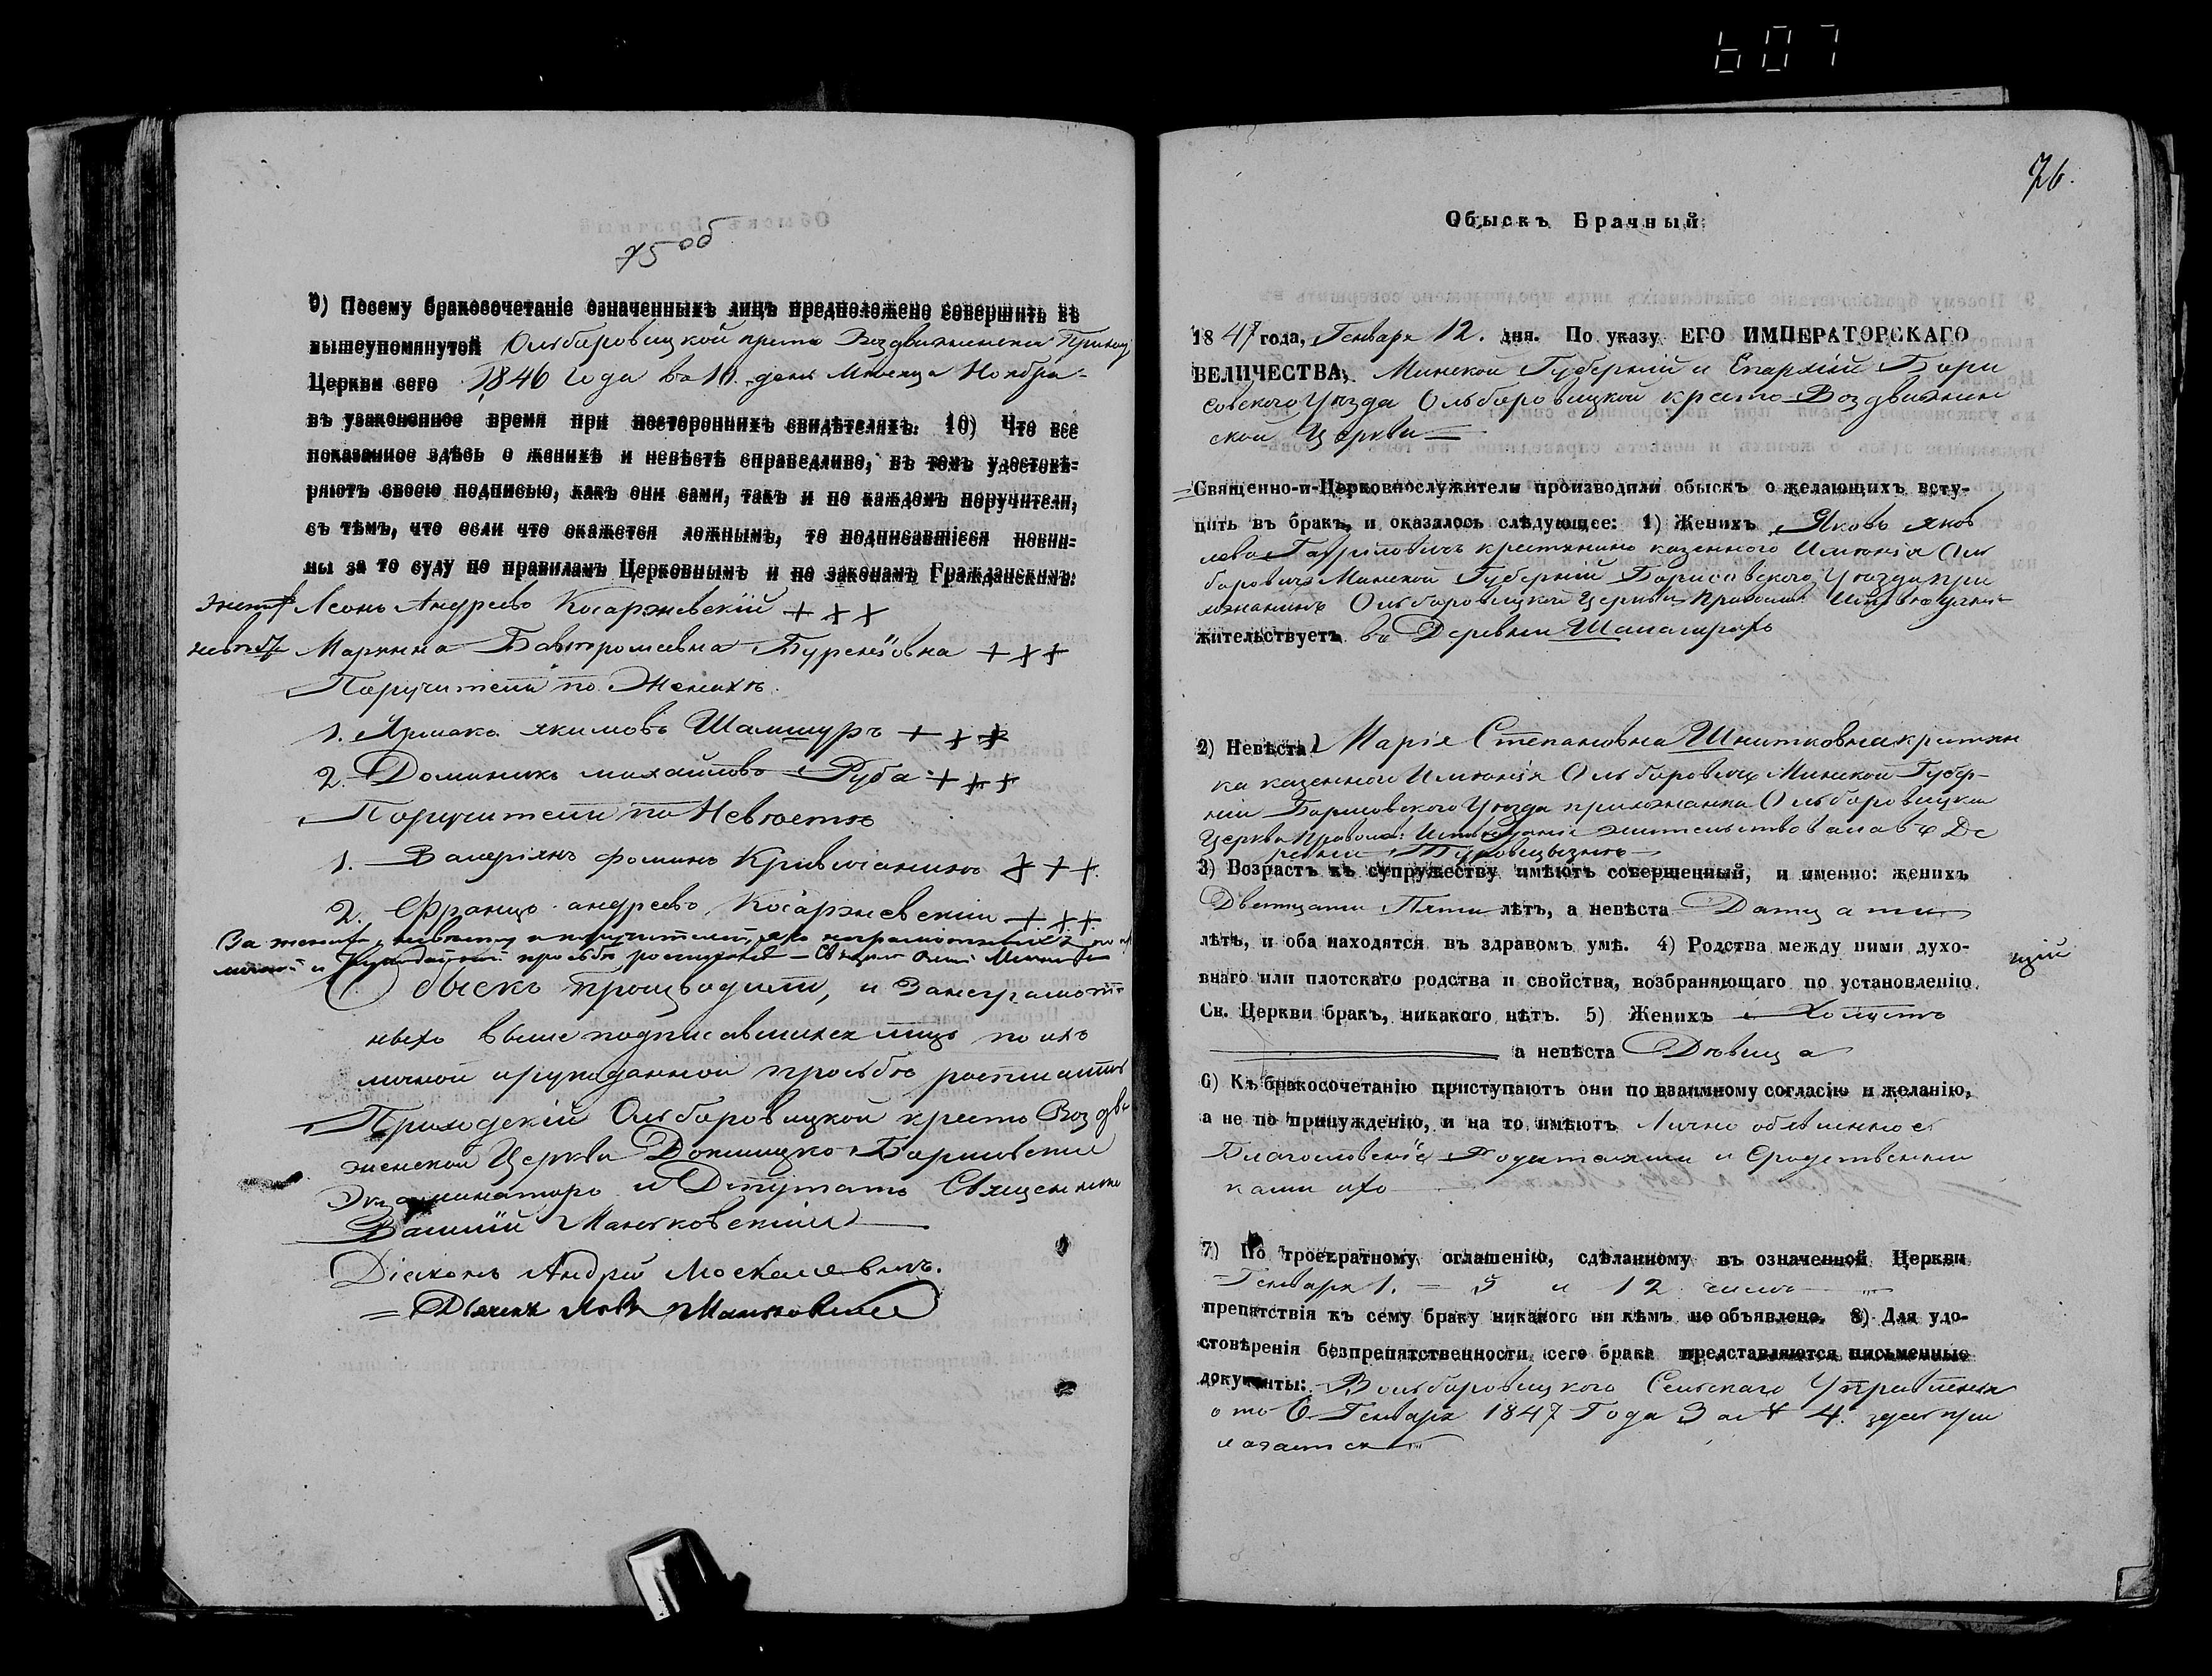 607
75 об
9) Посему бракосочетаніе означенныхъ лицъ предположено совершить въ
вышеупомянутой Ольборовицкой кресто Воздвиженской Приход
Церкви сего 1846 года въ 10. день Месяца Ноября
въ узаконенное время при постороннихъ свидѣтеляхъ. 10) Что все
показанное здѣсь о женихѣ и невѣстѣ справедливо, въ томъ удостовѣ-
ряютъ своею подписью, какъ они сами, такъ и по каждомъ поручители,
съ тѣмъ, что если что окажется ложнымъ, то подписавшіеся повин-
ны за то суду по правиламъ Церковнымъ и по законамъ Гражданскимъ:
Леонъ Андреевъ Косаржевскій + + +
Марянна Бавтромеевна + + +
Поручители по Женихѣ.
1. Ярмакъ якимовъ Шамшуръ + + +
2. Доминикъ михайловъ Руба + + +
Поручители по Невѣстѣ
1. Валеріянъ фоминъ + + +
2. Францъ андреевъ Косаржевскій + + +
За жениха, невѣсту и поручителей, яко неграмотныхъ по их
личной и рукоданной прозьбѣ росписался
Обыскъ производили, и За неграмот
ныхъ выше подписавшихся лицъ по ихъ
личной и рукоданной прозьбѣ росписались
Приходскій Ольборовицкой кресто Воздви
женской Церкви Докшицко Борисовскій
Экзаминаторъ и Депутатъ Священникъ
Василій Маньковскій
Діаконъ Андрей Москалевичъ.
76.
Обыскъ Брачный
1847 года, Генваря 12. дня. По указу ЕГО ИМПЕРАТОРСКАГО
ВЕЛИЧЕСТВА, Минской Губерніи и Епархіи Бори
совского Уезда Ольборовицкой кресто Воздвижен
ской Церкви
Священно-и-Церковнослужители производили обыскъ о желающихъ всту-
пить въ бракъ, и оказалось слѣдующее: 1) Женихъ Яковъ яков
левъ Гаврыловичъ крестянинъ казенного Имѣнія Оль
боровичъ Минской Губерніи Борисовского Уезда при
хожанинъ Ольборовицкой Церкви
жительствуетъ въ Деревни
2) Невѣста Марія Степановна крестян
ка казенного Имѣнія Ольборовичъ Минской Губер-
ніи Борисовского Уезда прихожанка Ольборовицкой
Церкви жительствовала въ Де
ревни
3) Возрастъ къ супружеству имѣютъ совершенный, и именно: женихъ
Двятцати Пяти лѣтъ, а невѣста Дватцати
лѣтъ, и оба находятся въ здравомъ умѣ. 4) Родства между ними духо-
внаго или плотскаго родства и свойства, возбраняющаго по установленію
Св. Церкви бракъ, никакого нѣтъ. 5) Женихъ Холустъ
а невѣста Дѣвица
6) Къ бракосочетанію приступаютъ они по взаимному согласію и желанію,
а не по принужденію, и на то имѣютъ Лично объявленное
Благословеніе Родителями и Сродственни
ками ихъ
7) По троекратному оглашенію, сдѣланному въ означенной Церкви
Генваря 1. 5 и 12 числъ
препятствія къ сему браку никакого ни кѣмъ не объявлено. 8) Для удо-
стовѣренія безпрепятственности сего брака представляются письменные
документы: Вольборовицкого Сельскаго Управленія
отъ 6 Генваря 1847 Года За № 4. здесь при
лагается